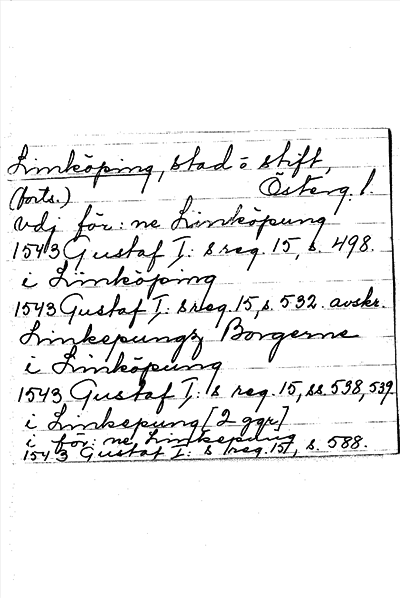 Linköping, stad o stift,
(forts.) Österg. l.
vdj för: ne Linköpung
1543 Gustaf I: s reg. 15, s. 498.
i Linköping
1543 Gustaf I: s reg. 15, s. 532. avskr.
Linkepungz Borgerne
i Linköpung
1543 Gustaf I: s reg. 15, ss 538, 539
i Linkepung [2 ggr]
i för: ne Linkepung
1543 Gustaf I: s reg. 15, s. 588.